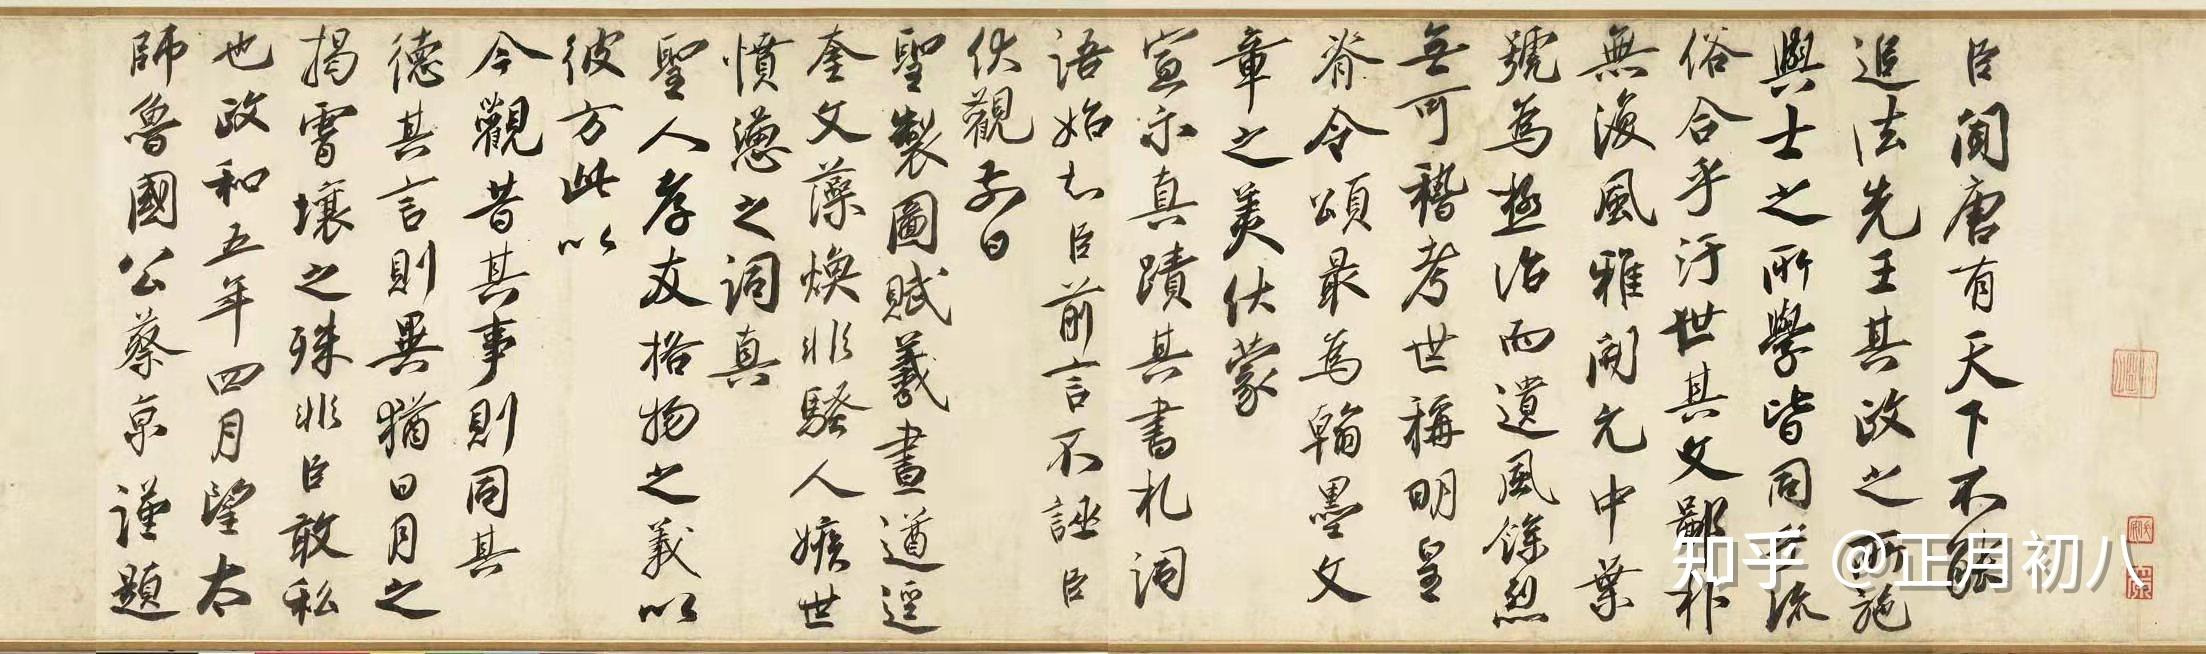 臣聞唐有天下不能
追法先王其政之所施
與士之所學皆同乎流
俗合乎汙世其文鄙朴
無復風雅開元中葉
號為極治而遺風餘烈
無可稽考世稱明皇
脊令頌最為翰墨文
章之美伏蒙
宣示真蹟其書札詞
語始知臣前言不誣臣
伏觀前日
聖製圖賦羲畫遒逕
奎文藻煥非騷人嫉世
憤懣之詞真
聖人孝友格物之義以
彼方此以
今觀昔其事則同其
德其言則異猶日月之
揭霄壤之殊非臣敢私
也政和五年四月望太
師魯國公蔡京謹題
知乎 @正月初八